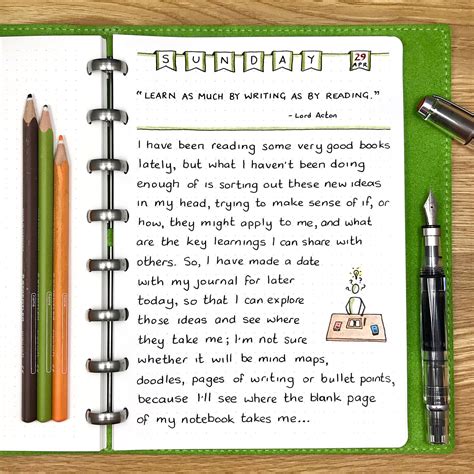 SUNDAY 29 APR
"LEARN AS MUCH BY WRITING AS BY READING."
- Lord Acton
I have been reading some very good books
lately, but what I haven't been doing
enough of is sorting out these new ideas
in my head, trying to make sense of if, or
how, they might apply to me, and what
are the key learnings I can share with
others. So, I have made a date
with my journal for later
today, so that I can explore
those ideas and see where
they take me; I'm not sure
whether it will be mind maps,
doodles, pages of writing or bullet points,
because I'll see where the blank page
of my notebook takes me...